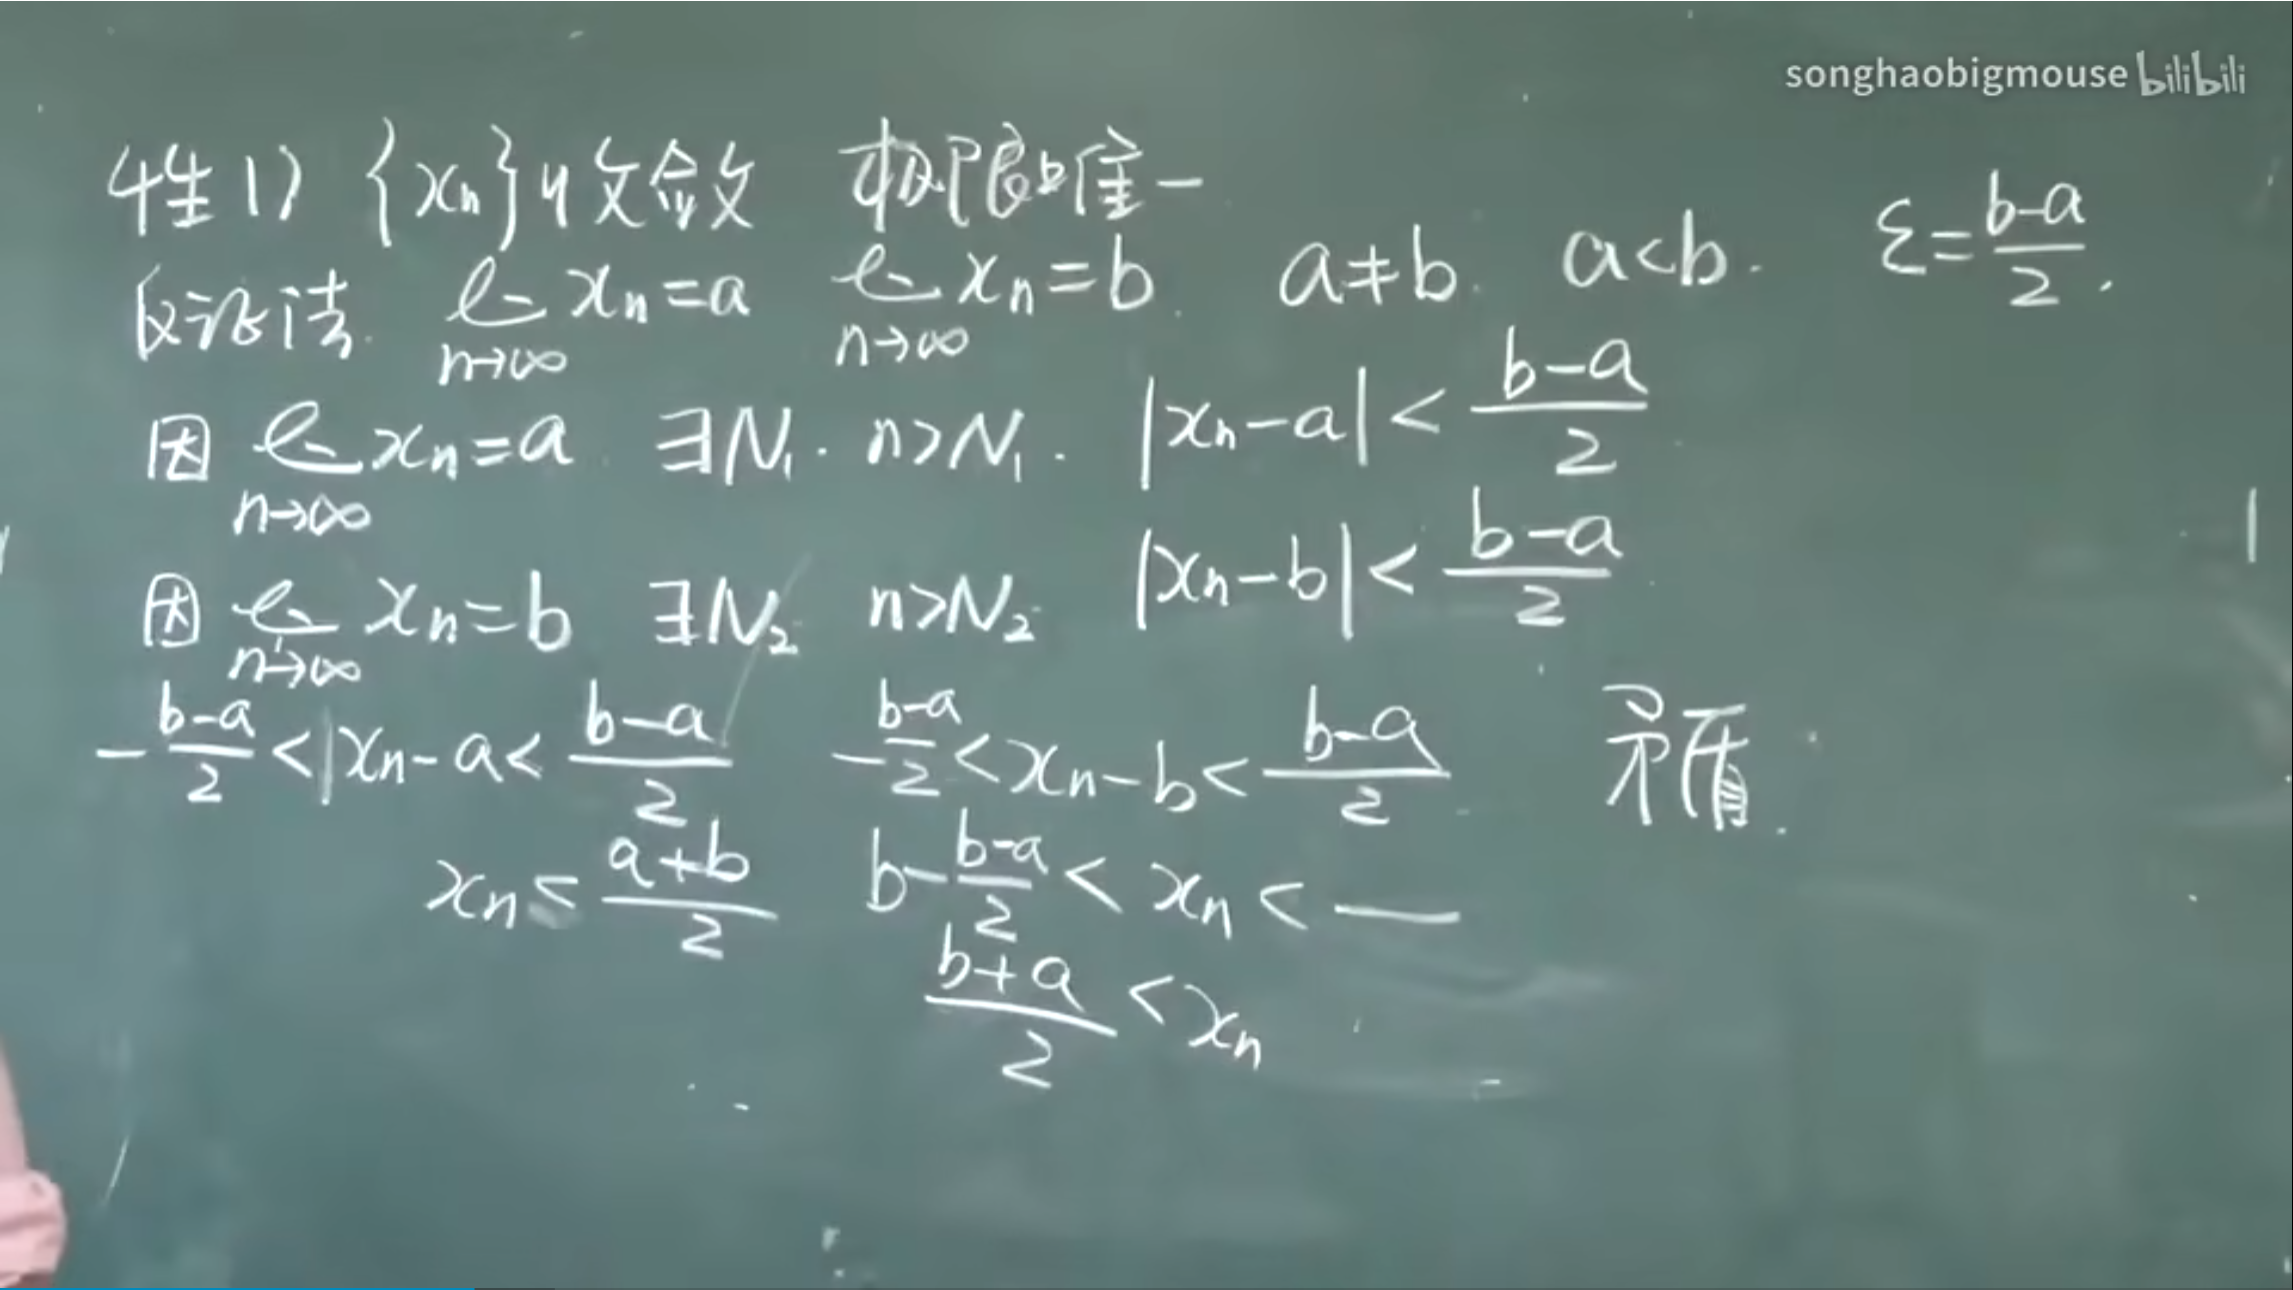 songhaobigmouse bilibili
性1) {xn}收敛 极限唯一
反证法. lim n→∞ xn=a lim n→∞ xn=b. a≠b. a<b. ε=(b-a)/2.
因 lim n→∞ xn=a ∃N₁. n>N₁. |xn-a|<(b-a)/2
因 lim n→∞ xn=b ∃N₂ n>N₂ |xn-b|<(b-a)/2
-(b-a)/2<|xn-a<(b-a)/2 -(b-a)/2<xn-b<(b-a)/2 矛盾.
xn<(a+b)/2 b-(b-a)/2<xn<—
(b+a)/2<xn